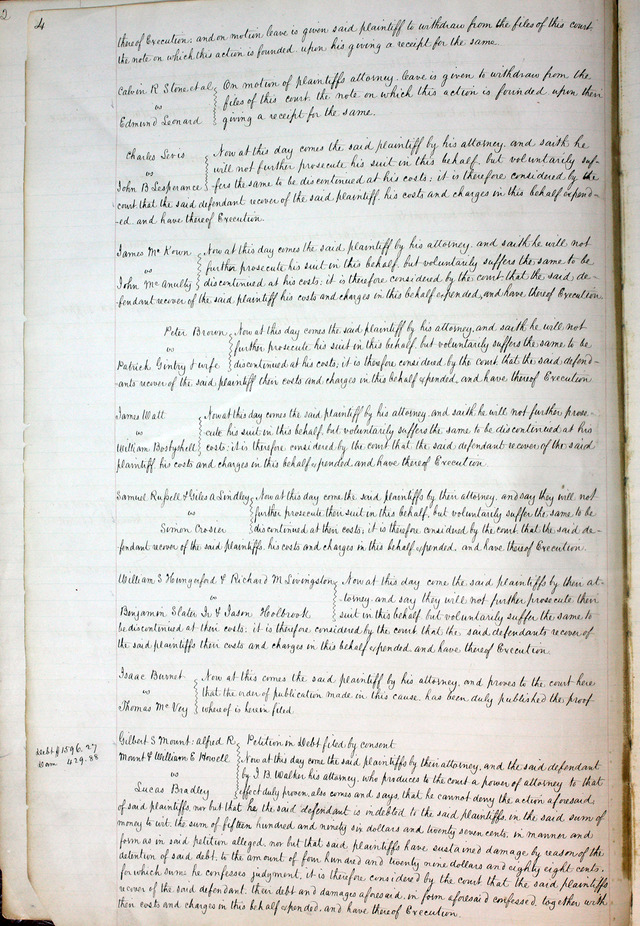 2
4
thereof Execution; and on motion leave is given said plaintiff to withdraw from the files of this court
the note on which this action is founded upon his giving a receipt for the same.
Calvin R Stone et al On motion of plaintiffs attorney, leave is given to withdraw from the
vs files of this court, the note on which this action is founded upon their
Edmund Leonard giving a receipt for the same.
Charles Levis Now at this day comes the said plaintiff by his attorney, and saith he
vs will not further prosecute his suit in this behalf, but voluntarily suf-
John B Lesperance fers the same to be discontinued at his costs; it is therefore considered by the
court that the said defendant recover of the said plaintiff, his costs and charges in this behalf expend-
-ed, and have thereof Execution.
James McKown Now at this day comes the said plaintiff by his attorney, and saith he will not
vs further prosecute his suit in this behalf, but voluntarily suffers the same to be
John McAnulty discontinued at his costs; it is therefore considered by the court that the said, de-
fendant recover of the said plaintiff his costs and charges in this behalf expended, and have thereof Execution
Peter Brown Now at this day comes the said plaintiff by his attorney, and saith he will not
vs further prosecute, his suit in this behalf, but voluntarily suffers the same to be
Patrick Gintry & wife discontinued at his costs; it is therefore considered by the court that the said defend-
ants recover of the said plaintiff their costs and charges in this behalf expended, and have thereof Execution
James Watt Now at this day comes the said plaintiff by his attorney, and saith he will not further prose-
vs cute his suit in this behalf, but voluntarily suffers the same to be discontinued at his
William Bostyshell costs; it is therefore considered by the court that the said defendant recover of the said
plaintiff his costs and charges in this behalf expended and have thereof Execution.
Samuel Russell & Giles A Lindley Now at this day come the said plaintiffs by their attorney, and say they will not
vs further prosecute their suit in this behalf, but voluntarily suffer the same to be
Simon Crosier discontinued at their costs; it is therefore considered by the court that the said de-
fendant recover of the said plaintiffs, his costs and charges in this behalf expended, and have thereof Execution.
William S Hungerford & Richard M Livingston Now at this day come the said plaintiffs by their at-
vs torney, and say they will not further prosecute their
Benjamin Slater Jr & Jason Hoolbrook suit in this behalf but voluntarily suffer the same to
be discontinued at their costs; it is therefore considered by the court that the said defendants recover of
the said plaintiffs their costs and charges in this behalf expended, and have thereof Execution.
Isaac Burnet Now at this comes the said plaintiff by his attorney, and proves to the court here
vs that the order of publication made in this cause, has been duly published the proof
Thomas McVey whereof is herein filed.
Gilbert S Mount; alfred R. Petition in Debt filed by consent
Debt $1596.27 Mount & William E Howell Now at this day come the said plaintiffs by their attorney, and the said defendant
Dam 429.88 vs by J.B. Walker his attorney, who produces to the court a power of attorney to that
Lucas Bradley effect duly proven, also comes and says, that he cannot deny the action aforesaid
of said plaintiffs, nor but that he the said defendant is indebted to the said plaintiffs, in the said sum of
money to wit, the sum of fifteen hundred and ninety six dollars and twenty seven cents, in manner and
form as in said petition alleged, nor but that said plaintiffs have sustained damage by reason of the
detention of said debt, to the amount of four hundred and twenty nine dollars and eighty eight cents,
for which sums he confesses judgment, it is therefore considered by the court that the said plaintiffs
recover of the said defendant, their debt and damages aforesaid, in form aforesaid confessed, together with
their costs and charges in this behalf expended, and have thereof Execution.